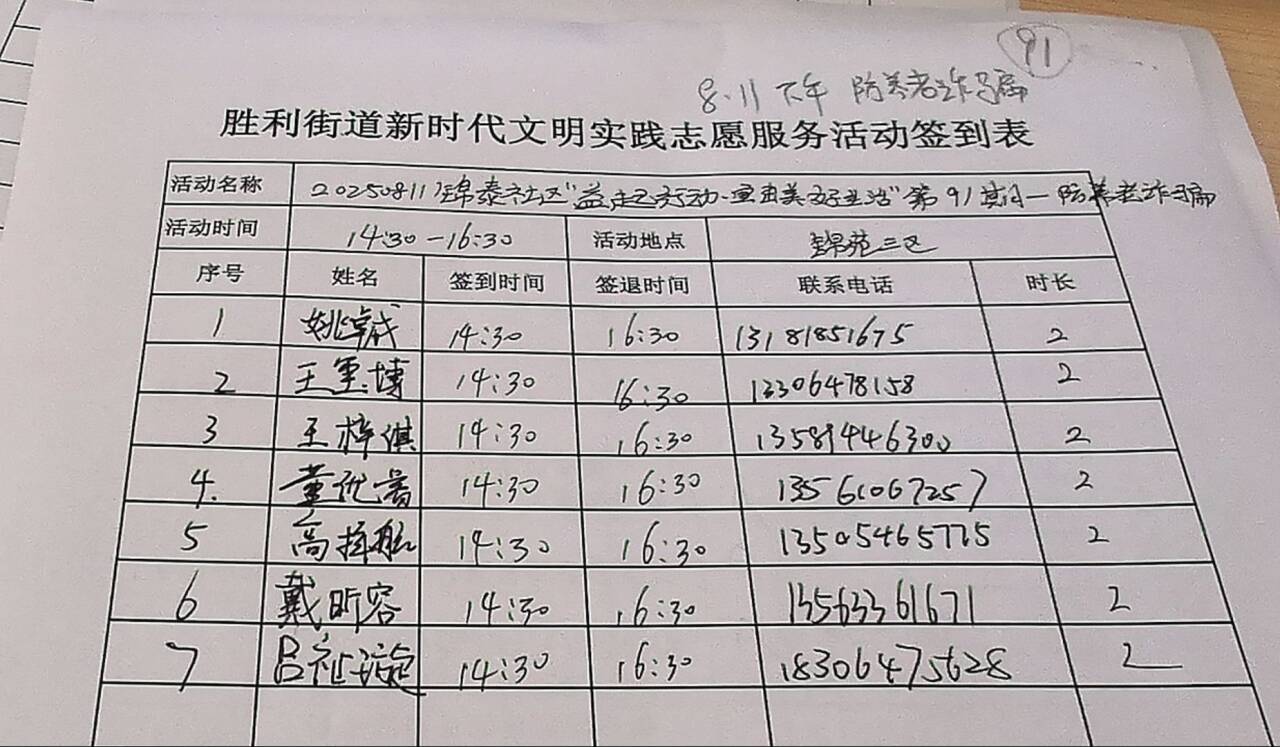 91
8.11 下午 防养老诈骗
胜利街道新时代文明实践志愿服务活动签到表
活动名称 20250811锦泰社区"益起行动·宜由美好生活"第91期—防养老诈骗
活动时间 14:30-16:30 活动地点 锦苑三区
序号 姓名 签到时间 签退时间 联系电话 时长
1 姚 14:30 16:30 13181851675 2
2 王 博 14:30 16:30 13306478158 2
3 王梓淇 14:30 16:30 13589446300 2
4. 董优 14:30 16:30 13561067257 2
5 高 航 14:30 16:30 13505465775 2
6 戴昕容 14:30 16:30 13563361671 2
7 吕祉漩 14:30 16:30 18306475628 2